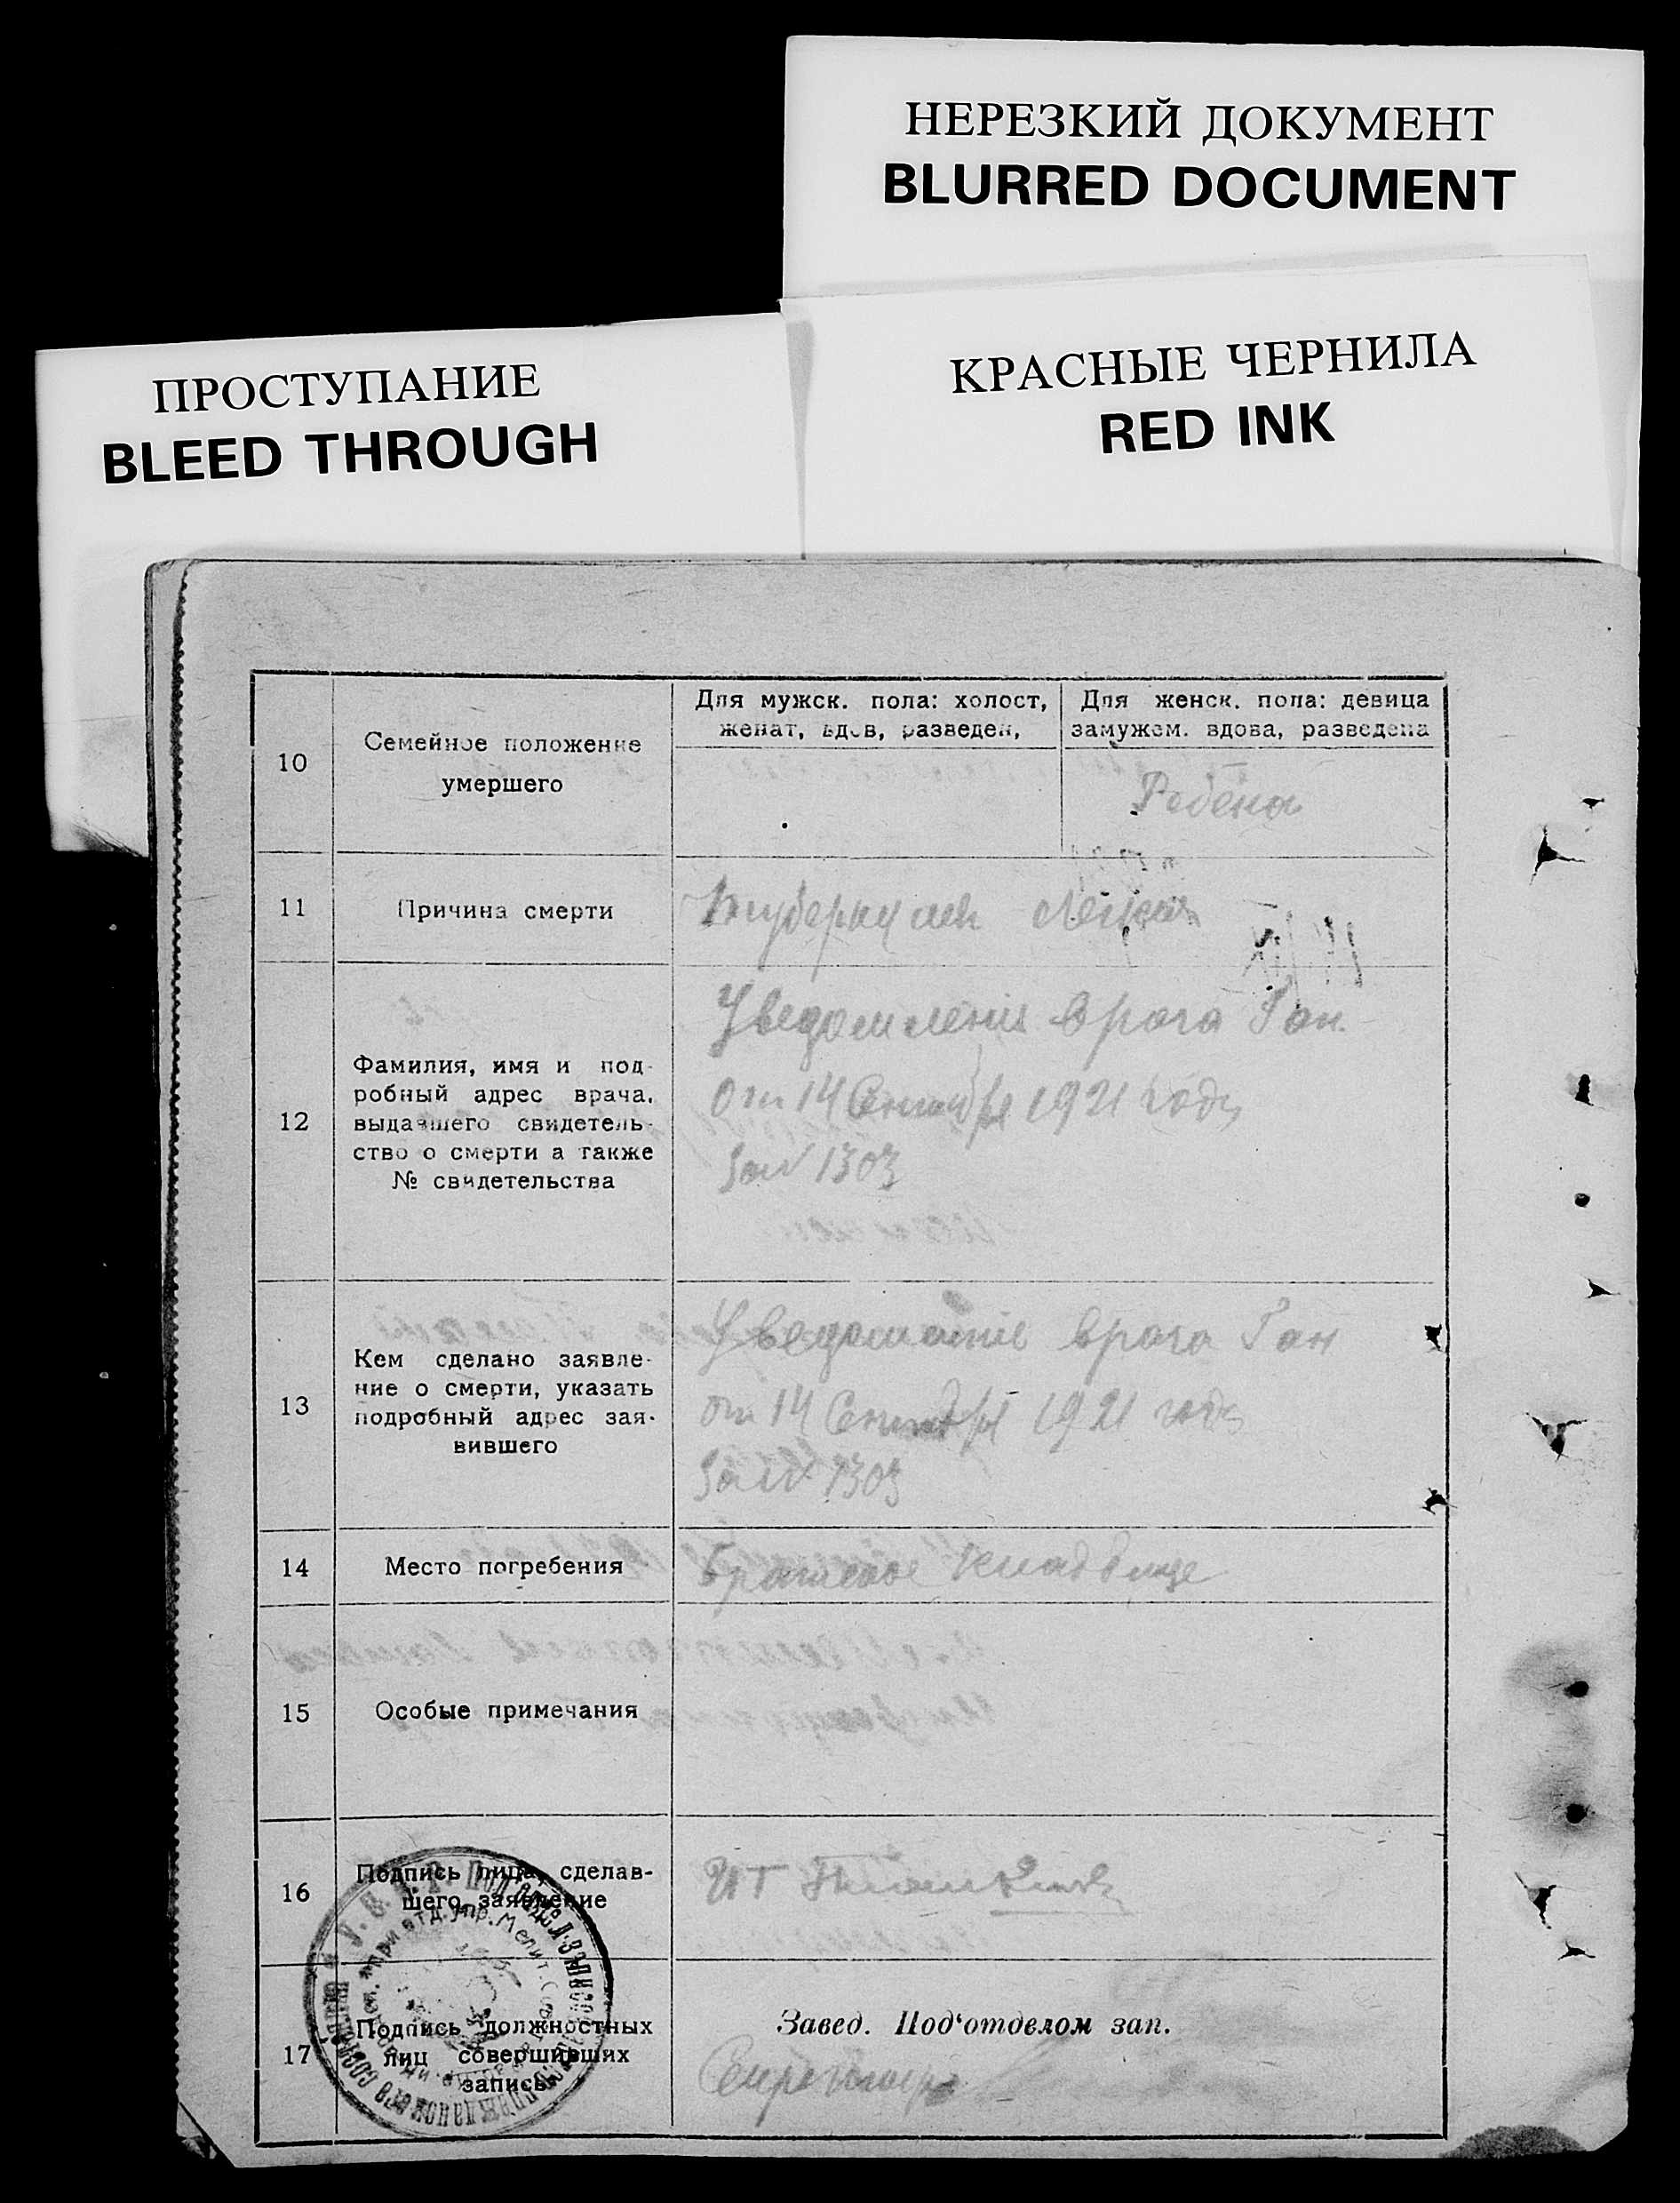 НЕРЕЗКИЙ ДОКУМЕНТ
BLURRED DOCUMENT
КРАСНЫЕ ЧЕРНИЛА
RED INK
ПРОСТУПАНИЕ
BLEED THROUGH
10
Семейное положение
умершего
Для мужск. пола: холост,
женат, вдов, разведен,
Для женск. пола: девица
замужем. вдова, разведена
11
Причина смерти
12
Фамилия, имя и под-
робный адрес врача,
выдавшего свидетель-
ство о смерти а также
№ свидетельства
врача Ган.
от 14 Сентября 1921 года
за N 1303
13
Кем сделано заявле-
ние о смерти, указать
подробный адрес зая-
вившего
врача Ган
от 14 Сентября 1921 года
за N 1303
14
Место погребения
Братское Кладбище
15
Особые примечания
16
Подпись лица, сделав-
шего заявление
17
Подпись должностных
лиц совершивших
запись
Завед. Под‘отделом зап.
Секретарь